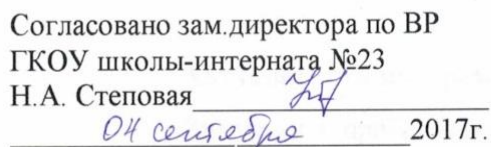 Согласовано зам.директора по ВР
ГКОУ школы-интерната №23
Н.А. Степовая
04 сентября 2017г.